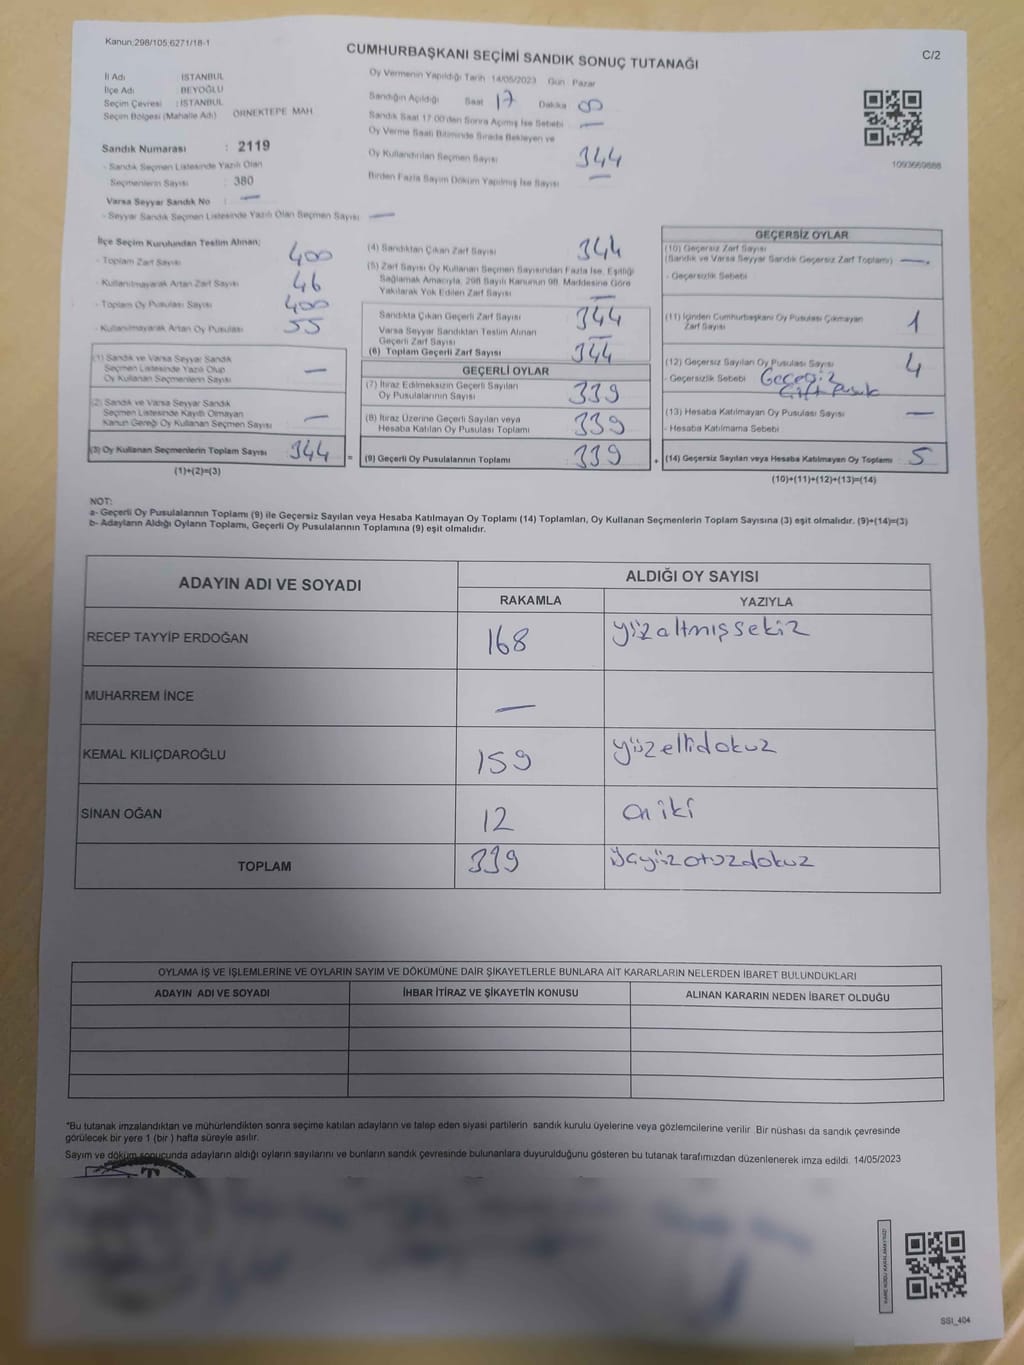 Kanun:298/105:6271/18-1
CUMHURBAŞKANI SEÇİMİ SANDIK SONUÇ TUTANAĞI
C/2
İl Adı : İSTANBUL
İlçe Adı : BEYOĞLU
Seçim Çevresi : İSTANBUL
Seçim Bölgesi (Mahalle Adı) : ÖRNEKTEPE MAH
Sandık Numarası : 2119
- Sandık Seçmen Listesinde Yazılı Olan
Seçmenlerin Sayısı : 380
Varsa Seyyar Sandık No : —
- Seyyar Sandık Seçmen Listesinde Yazılı Olan Seçmen Sayısı : —
Oy Vermenin Yapıldığı Tarih : 14/05/2023 Gün : Pazar
Sandığın Açıldığı Saat 17 Dakika 00
Sandık Saat 17:00'den Sonra Açılmış İse Sebebi —
Oy Verme Saati Bitiminde Sırada Bekleyen ve
Oy Kullandırılan Seçmen Sayısı 344
Birden Fazla Sayım Döküm Yapılmış İse Sayısı —
1093669888
İlçe Seçim Kurulundan Teslim Alınan;
- Toplam Zarf Sayısı 400
- Kullanılmayarak Artan Zarf Sayısı 46
- Toplam Oy Pusulası Sayısı 400
- Kullanılmayarak Artan Oy Pusulası 55
(1) Sandık ve Varsa Seyyar Sandık
Seçmen Listesinde Yazılı Olup
Oy Kullanan Seçmenlerin Sayısı —
(2) Sandık ve Varsa Seyyar Sandık
Seçmen Listesinde Kayıtlı Olmayan
Kanun Gereği Oy Kullanan Seçmen Sayısı —
(3) Oy Kullanan Seçmenlerin Toplam Sayısı 344 =
(1)+(2)=(3)
(4) Sandıktan Çıkan Zarf Sayısı 344
(5) Zarf Sayısı Oy Kullanan Seçmen Sayısından Fazla İse, Eşitliği
Sağlamak Amacıyla, 298 Sayılı Kanunun 98. Maddesine Göre
Yakılarak Yok Edilen Zarf Sayısı —
Sandıkta Çıkan Geçerli Zarf Sayısı 344
Varsa Seyyar Sandıktan Teslim Alınan
Geçerli Zarf Sayısı —
(6) Toplam Geçerli Zarf Sayısı 344
GEÇERLİ OYLAR
(7) İtiraz Edilmeksizin Geçerli Sayılan
Oy Pusulalarının Sayısı 339
(8) İtiraz Üzerine Geçerli Sayılan veya
Hesaba Katılan Oy Pusulası Toplamı 339
(9) Geçerli Oy Pusulalarının Toplamı 339 +
GEÇERSİZ OYLAR
(10) Geçersiz Zarf Sayısı
(Sandık ve Varsa Seyyar Sandık Geçersiz Zarf Toplamı) —
- Geçersizlik Sebebi
(11) İçinden Cumhurbaşkanı Oy Pusulası Çıkmayan
Zarf Sayısı 1
(12) Geçersiz Sayılan Oy Pusulası Sayısı 4
- Geçersizlik Sebebi
(13) Hesaba Katılmayan Oy Pusulası Sayısı —
- Hesaba Katılmama Sebebi
(14) Geçersiz Sayılan veya Hesaba Katılmayan Oy Toplamı 5
(10)+(11)+(12)+(13)=(14)
NOT:
a- Geçerli Oy Pusulalarının Toplamı (9) ile Geçersiz Sayılan veya Hesaba Katılmayan Oy Toplamı (14) Toplamları, Oy Kullanan Seçmenlerin Toplam Sayısına (3) eşit olmalıdır. (9)+(14)=(3)
b- Adayların Aldığı Oyların Toplamı, Geçerli Oy Pusulalarının Toplamına (9) eşit olmalıdır.
ADAYIN ADI VE SOYADI
ALDIĞI OY SAYISI
RAKAMLA YAZIYLA
RECEP TAYYİP ERDOĞAN 168 yüzaltmışsekiz
MUHARREM İNCE —
KEMAL KILIÇDAROĞLU 159 yüzellidokuz
SİNAN OĞAN 12 on iki
TOPLAM 339 üçyüzotuzdokuz
OYLAMA İŞ VE İŞLEMLERİNE VE OYLARIN SAYIM VE DÖKÜMÜNE DAİR ŞİKAYETLERLE BUNLARA AİT KARARLARIN NELERDEN İBARET BULUNDUKLARI
ADAYIN ADI VE SOYADI İHBAR İTİRAZ VE ŞİKAYETİN KONUSU ALINAN KARARIN NEDEN İBARET OLDUĞU
*Bu tutanak imzalandıktan ve mühürlendikten sonra seçime katılan adayların ve talep eden siyasi partilerin sandık kurulu üyelerine veya gözlemcilerine verilir. Bir nüshası da sandık çevresinde
görülecek bir yere 1 (bir) hafta süreyle asılır.
Sayım ve döküm sonucunda adayların aldığı oyların sayılarını ve bunların sandık çevresinde bulunanlara duyurulduğunu gösteren bu tutanak tarafımızdan düzenlenerek imza edildi. 14/05/2023
KARE KODU KARALAMAYINIZ!
SSI_404